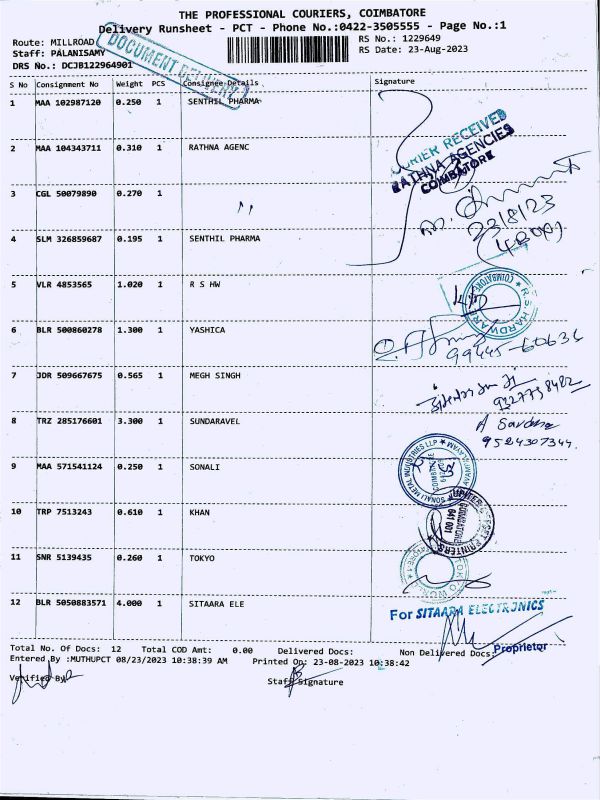 THE PROFESSIONAL COURIERS, COIMBATORE
Delivery Runsheet - PCT - Phone No.:0422-3505555 - Page No.:1
Route: MILLROAD
RS No.: 1229649
Staff: PALANISAMY
RS Date: 23-Aug-2023
DRS No.: DCJB122964901
DOCUMENT DELIVERY
S No Consignment No Weight PCS Consignee Details Signature
1 MAA 102987120 0.250 1 SENTHIL PHARMA
2 MAA 104343711 0.310 1 RATHNA AGENC
COURIER RECEIVED
RATHNA AGENCIES
COIMBATORE
3 CGL 50079890 0.270 1 〃
23/8/23
4 SLM 326859687 0.195 1 SENTHIL PHARMA
5 VLR 4853565 1.020 1 R S HW
R.S. HARDWARE
COIMBATORE
6 BLR 500860278 1.300 1 YASHICA
99445-60636
7 JDR 509667675 0.565 1 MEGH SINGH
9327738482
8 TRZ 285176601 3.300 1 SUNDARAVEL
9524307344
9 MAA 571541124 0.250 1 SONALI
SONALI METAL INDUSTRIES LLP
10 TRP 7513243 0.610 1 KHAN
JUPITER OFFSET PRINTERS
COIMBATORE
641 001
11 SNR 5139435 0.260 1 TOKYO
12 BLR 5050883571 4.000 1 SITAARA ELE
For SITAARA ELECTRONICS
Proprietor
Total No. Of Docs: 12 Total COD Amt: 0.00 Delivered Docs: Non Delivered Docs:
Entered By :MUTHUPCT 08/23/2023 10:38:39 AM Printed On: 23-08-2023 10:38:42
Verified By
Staff Signature